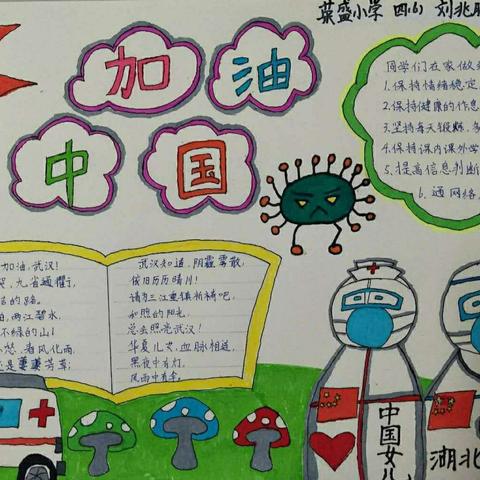 菜盛小学 四(6) 刘兆
加油
中国
同学们在家做
1.保持情绪稳定
2.保持健康的作息
3.坚持每天锻炼
4.保持课内课外学
5.提高信息判断
6.通网络
加油,武汉!
九省通衢
的路
两江碧水
不绿的山
春风化雨
是萋萋芳草
武汉知道,阴霾雾散,
依旧历历晴川!
请为三江重镇祈祷吧,
和煦的阳光,
总会照亮武汉!
华夏儿女,血脉相连,
黑夜中有灯,
风雨中有伞,
中国女儿
湖北